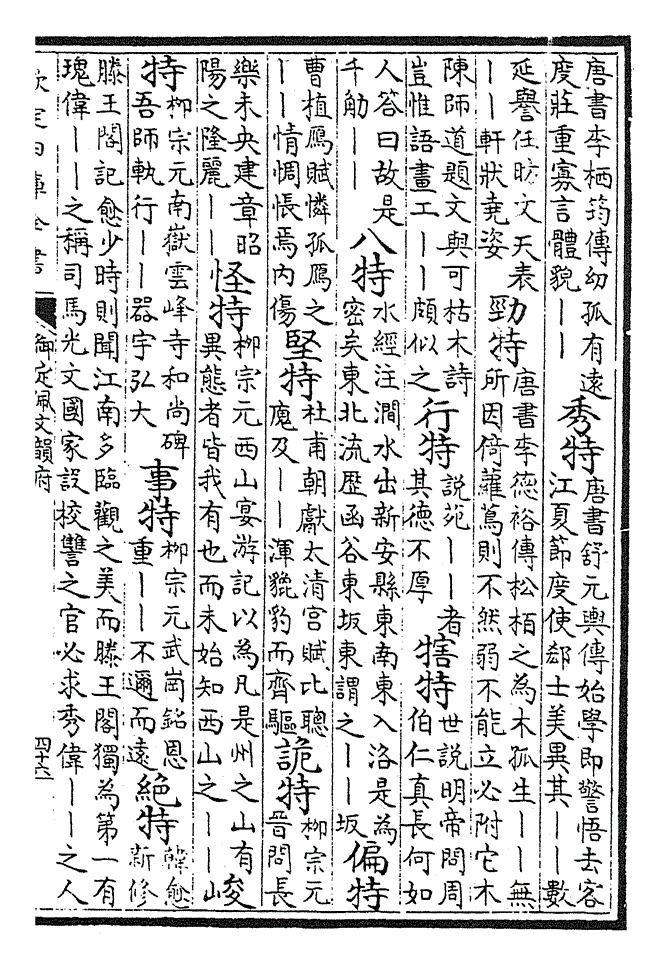 唐書李栖筠傳幼孤有遠
度莊重寡言體貌丨丨
秀特
唐書舒元輿傳始學即警悟去客
江夏節度使郄士美異其丨丨數
延譽任昉文天表
丨丨軒狀堯姿
勁特
唐書李德裕傳松栢之為木孤生丨丨無
所因倚蘿蔦則不然弱不能立必附它木
陳師道題文與可枯木詩
豈惟語畫工丨丨頗似之
行特
說苑丨丨者
其德不厚
犗特
世說明帝問周
伯仁真長何如
人答曰故是
千觔丨丨
八特
水經注澗水出新安縣東南東入洛是為
密矣東北流歷函谷東坂東謂之丨丨坂
偏特
曹植鴈賦憐孤鴈之
丨丨情惆悵焉内傷
堅特
杜甫朝獻太清宫賦比聰
廆及丨丨渾貔豹而齊驅
詭特
柳宗元
晉問長
樂未央建章昭
陽之隆麗丨丨
怪特
柳宗元西山宴游記以為凡是州之山有
異態者皆我有也而未始知西山之丨丨
峻
特
柳宗元南嶽雲峰寺和尚碑
吾師執行丨丨器宇弘大
事特
柳宗元武崗銘恩
重丨丨不邇而遠
絶特
韓愈
新修
滕王閣記愈少時則聞江南多臨觀之美而滕王閣獨為第一有
瑰偉丨丨之稱司馬光文國家設校讐之官必求秀偉丨丨之人
欽定四庫全書
御定佩文韻府
四十六